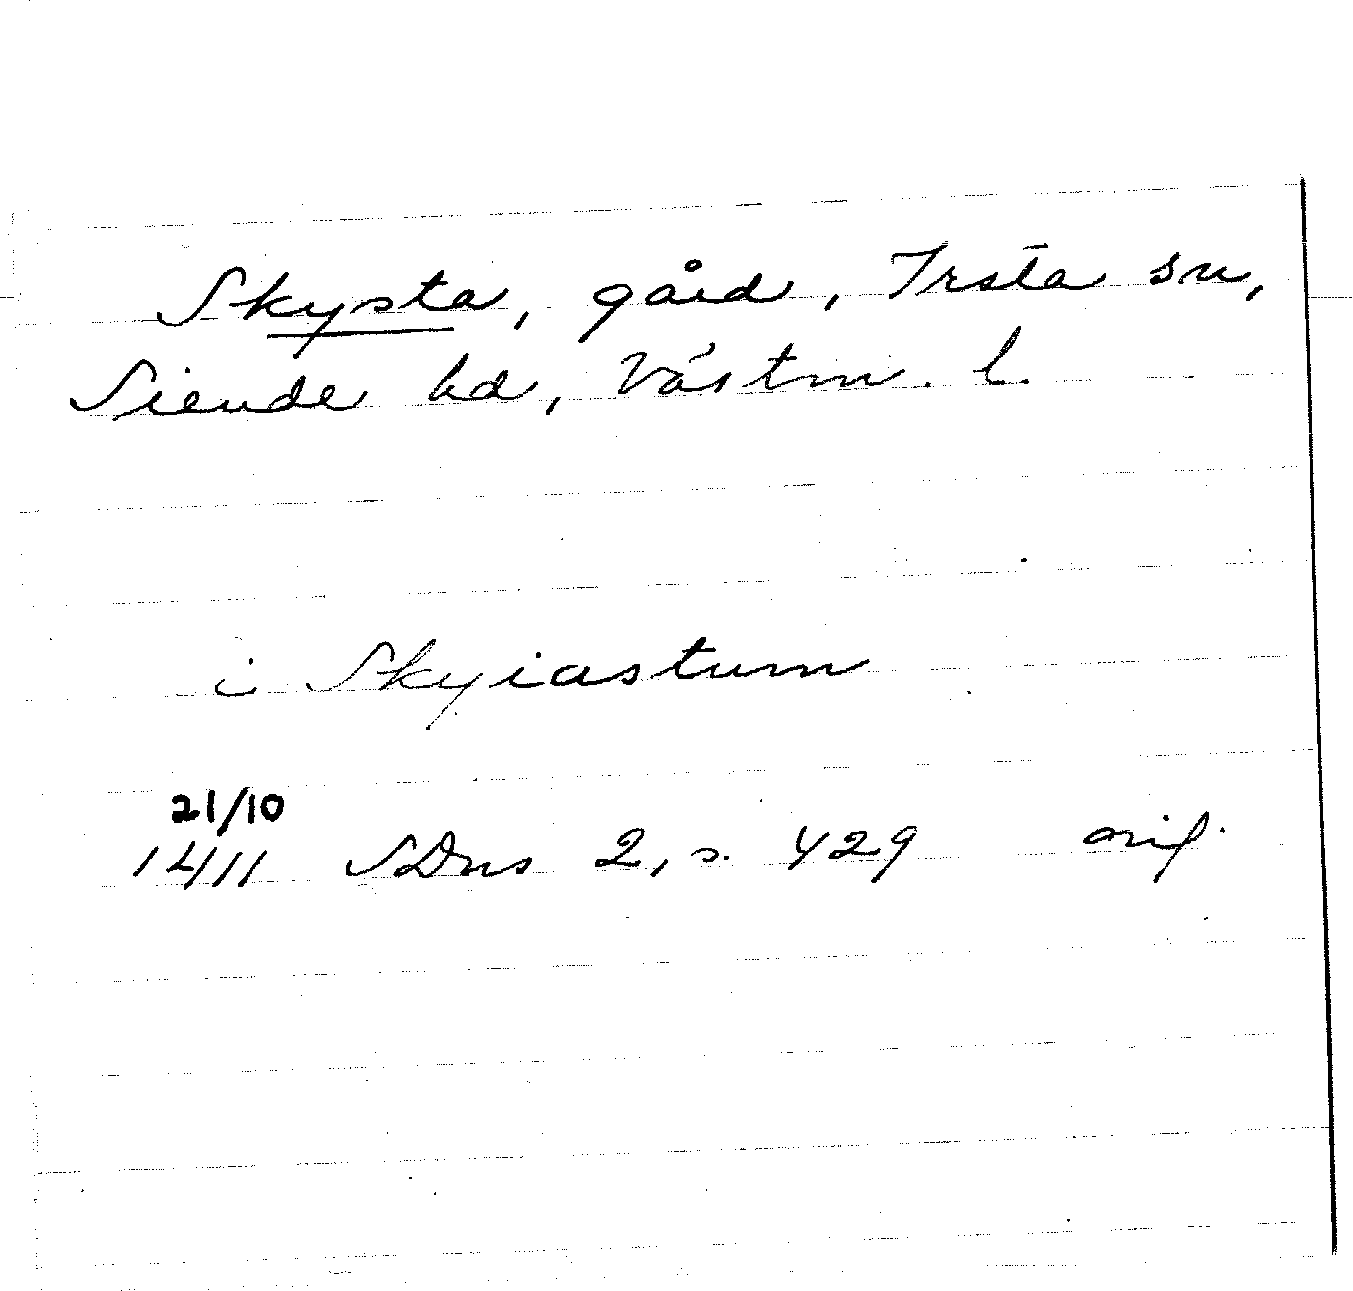 Skysta, gård, Irsta sn,
Siende hd, Västm. l.
i Skyiastum
21/10
1411 SDns 2, s. 429 orig.